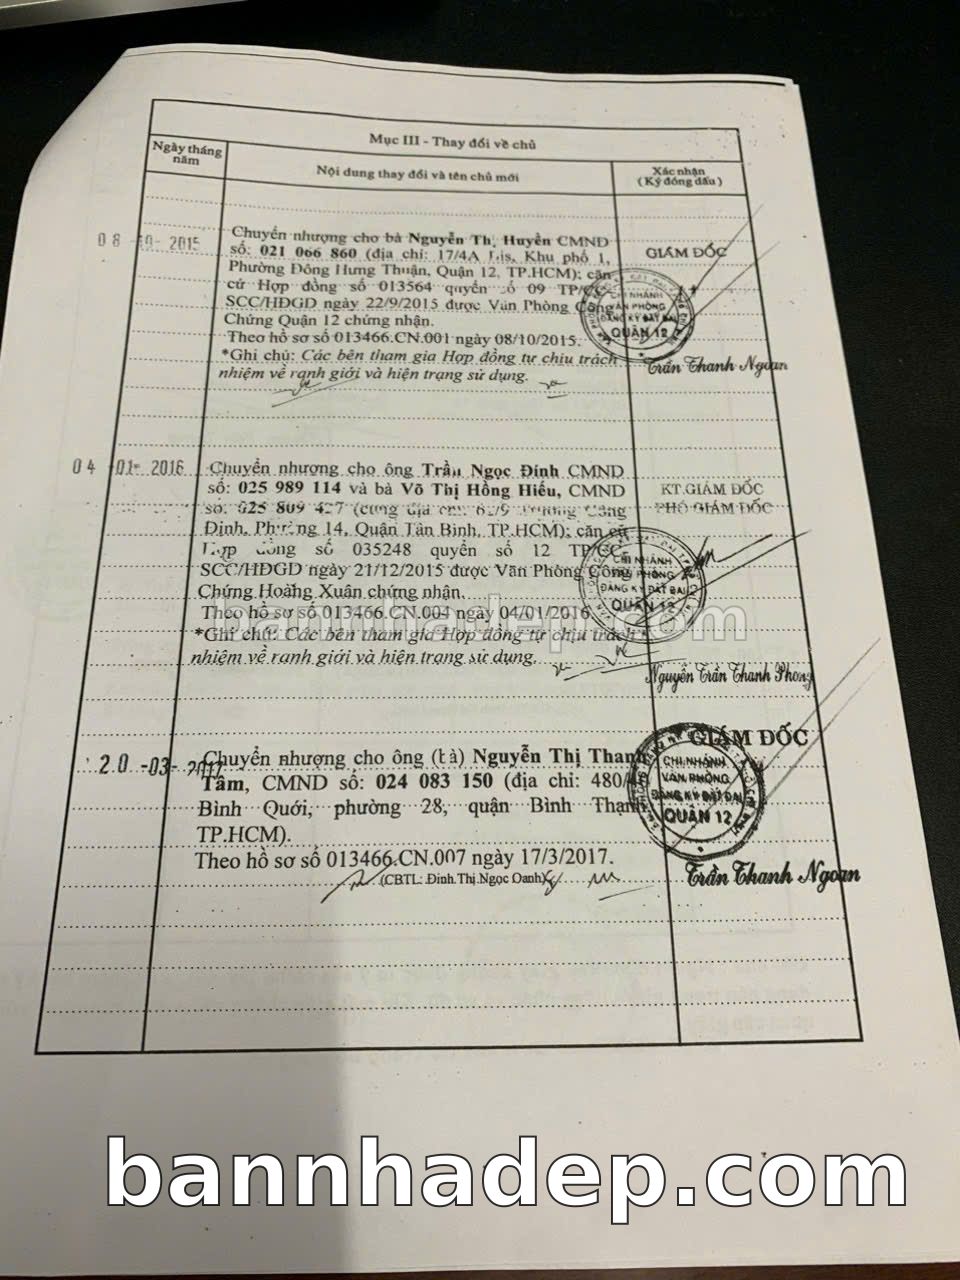 Mục III - Thay đổi về chủ
Ngày tháng năm
Nội dung thay đổi và tên chủ mới
Xác nhận
(Ký đóng dấu)
08 -10- 2015
Chuyển nhượng cho bà Nguyễn Thị Huyền CMND
số: 021 066 860 (địa chỉ: 17/4A Khu phố 1,
Phường Đông Hưng Thuận, Quận 12, TP.HCM); căn
cứ Hợp đồng số 013564 quyển số 09 TP/CC-
SCC/HĐGD ngày 22/9/2015 được Văn Phòng Công
Chứng Quận 12 chứng nhận.
Theo hồ sơ số 013466.CN.001 ngày 08/10/2015.
*Ghi chú: Các bên tham gia Hợp đồng tự chịu trách
nhiệm về ranh giới và hiện trạng sử dụng.
GIÁM ĐỐC
CHI NHÁNH
VĂN PHÒNG
ĐĂNG KÝ ĐẤT ĐAI
QUẬN 12
Trần Thanh Ngoan
04 -01- 2016
Chuyển nhượng cho ông Trần Ngọc Đính CMND
số: 025 989 114 và bà Võ Thị Hồng Hiếu, CMND
số: 025 809 427 (cùng địa chỉ: Trường Công
Định, Phường 14, Quận Tân Bình, TP.HCM); căn cứ
Hợp đồng số 035248 quyển số 12 TP/CC-
SCC/HĐGD ngày 21/12/2015 được Văn Phòng Công
Chứng Hoàng Xuân chứng nhận.
Theo hồ sơ số 013466.CN.004 ngày 04/01/2016
*Ghi chú: Các bên tham gia Hợp đồng tự chịu trách
nhiệm về ranh giới và hiện trạng sử dụng.
KT.GIÁM ĐỐC
PHÓ GIÁM ĐỐC
CHI NHÁNH
VĂN PHÒNG
ĐĂNG KÝ ĐẤT ĐAI
QUẬN 12
Nguyễn Trần Thanh Phong
bannhadep.com
20 -03- 2017
Chuyển nhượng cho ông (bà) Nguyễn Thị Thanh
Tâm, CMND số: 024 083 150 (địa chỉ:
Bình Quới, phường 28, quận Bình Thạnh
TP.HCM).
Theo hồ sơ số 013466.CN.007 ngày 17/3/2017.
(CBTL: Đinh Thị Ngọc Oanh)
GIÁM ĐỐC
CHI NHÁNH
VĂN PHÒNG
ĐĂNG KÝ ĐẤT ĐAI
QUẬN 12
Trần Thanh Ngoan
bannhadep.com